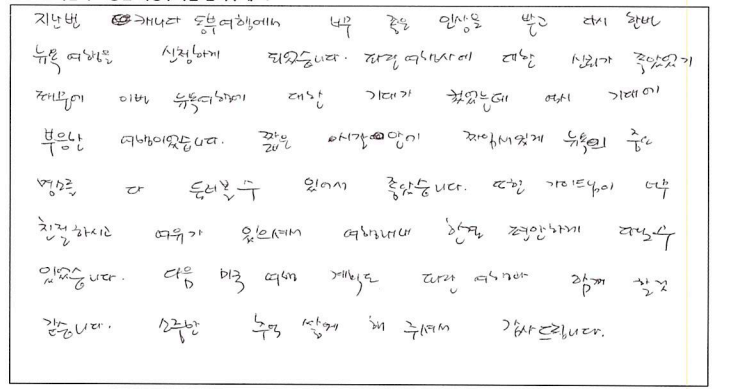 지난번 캐나다 동부여행에서 너무 좋은 인상을 받고 다시 한번
뉴욕 여행을 신청하게 되었습니다. 파란여행사에 대한 신뢰가 쌓였었기
때문에 이번 뉴욕여행에 대한 기대가 컸었는데 역시 기대에
부응한 여행이었습니다. 짧은 시간 안에 짜임새있게 뉴욕의 중요
명소를 다 둘러볼 수 있어서 좋았습니다. 또한 가이드님이 너무
친절하시고 여유가 있으셔서 여행내내 한결 편안하게 다닐수
있었습니다. 다음 미국 여행 계획도 파란 여행사와 함께 할 것
같습니다. 소중한 추억 쌓게 해 주셔서 감사드립니다.